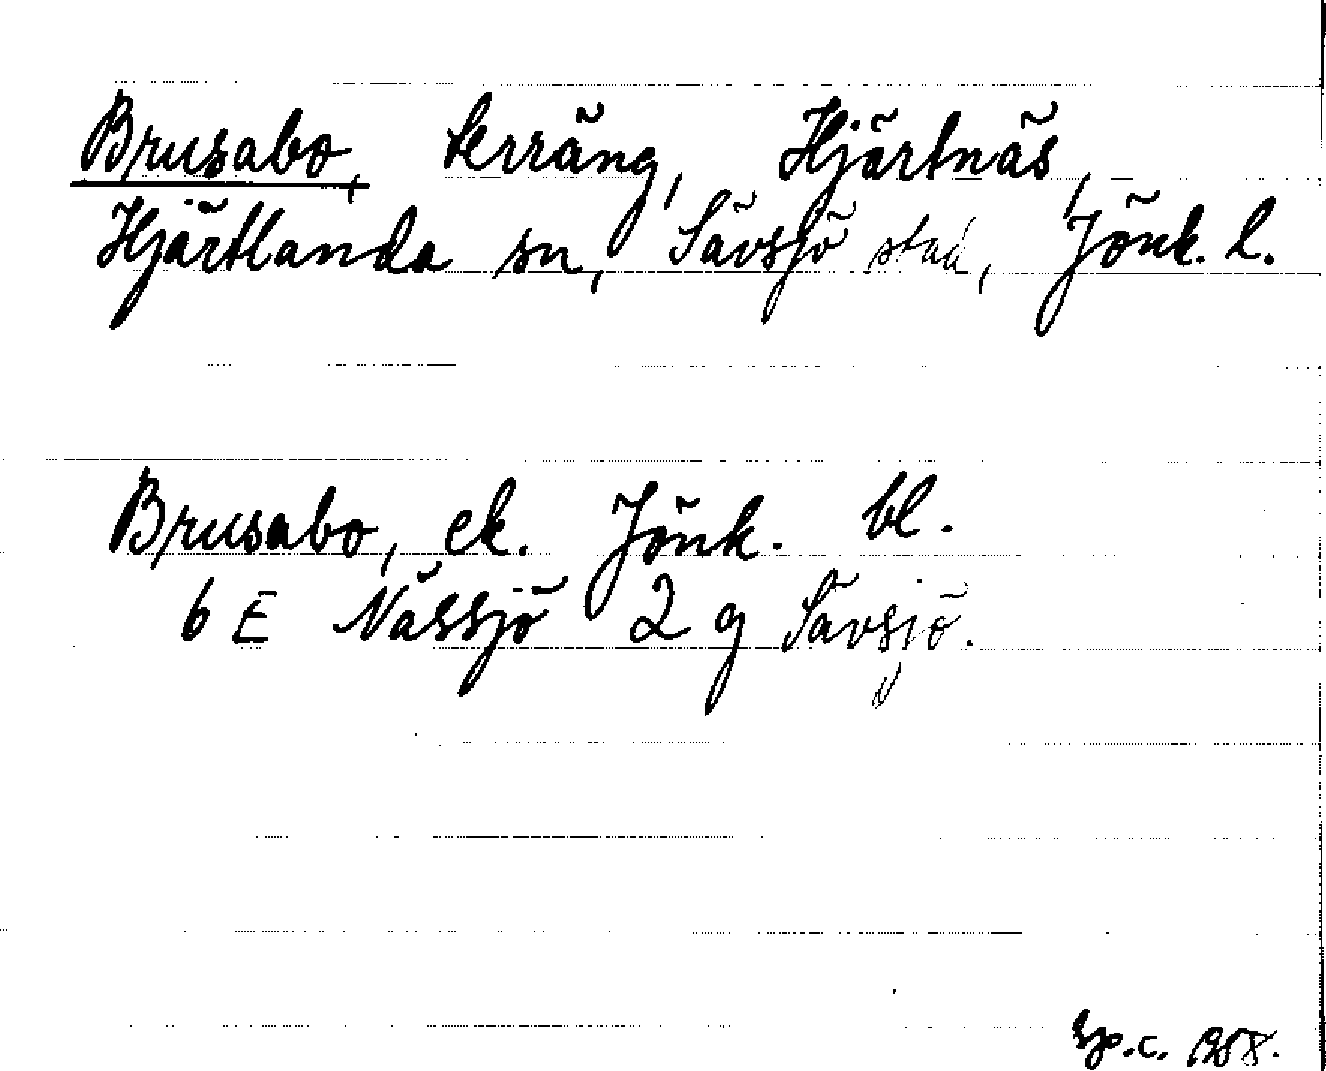 Brusabo, terräng, Hjärtnäs,
Hjärtlanda sn, Sävsjö stad, Jönk. l.
Brusabo, ek. Jönk. bl.
6 E Nässjö 2 g Sävsjö.
1958.